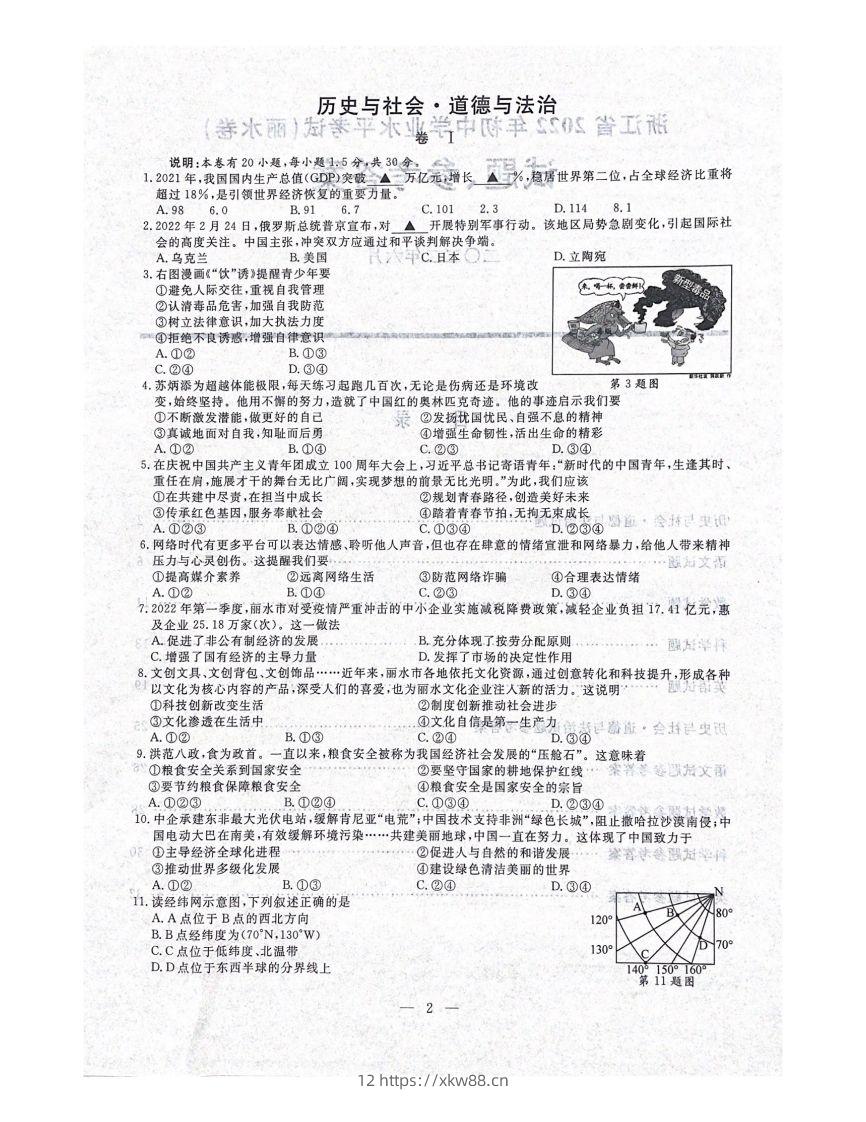 历史与社会·道德与法治
卷 Ⅰ
说明:本卷有20小题,每小题1.5分,共30分。
1.2021年,我国国内生产总值(GDP)突破 ▲ 万亿元,增长 ▲ %,稳居世界第二位,占全球经济比重将
超过18%,是引领世界经济恢复的重要力量。
A.98 6.0 B.91 6.7 C.101 2.3 D.114 8.1
2.2022年2月24日,俄罗斯总统普京宣布,对 ▲ 开展特别军事行动。该地区局势急剧变化,引起国际社
会的高度关注。中国主张,冲突双方应通过和平谈判解决争端。
A.乌克兰 B.美国 C.日本 D.立陶宛
3.右图漫画《“饮”诱》提醒青少年要
①避免人际交往,重视自我管理
②认清毒品危害,加强自我防范
③树立法律意识,加大执法力度
④拒绝不良诱惑,增强自律意识
A.①② B.①③
C.②④ D.③④
来,喝一杯,尝尝鲜!
新型毒品
第3题图
4.苏炳添为超越体能极限,每天练习起跑几百次,无论是伤病还是环境改
变,始终坚持。他用不懈的努力,造就了中国红的奥林匹克奇迹。他的事迹启示我们要
①不断激发潜能,做更好的自己 ②发扬忧国忧民、自强不息的精神
③真诚地面对自我,知耻而后勇 ④增强生命韧性,活出生命的精彩
A.①② B.①④ C.②③ D.③④
5.在庆祝中国共产主义青年团成立100周年大会上,习近平总书记寄语青年:“新时代的中国青年,生逢其时、
重任在肩,施展才干的舞台无比广阔,实现梦想的前景无比光明。”为此,我们应该
①在共建中尽责,在担当中成长 ②规划青春路径,创造美好未来
③传承红色基因,服务奉献社会 ④踏着青春节拍,无拘无束成长
A.①②③ B.①②④ C.①③④ D.②③④
6.网络时代有更多平台可以表达情感、聆听他人声音,但也存在肆意的情绪宣泄和网络暴力,给他人带来精神
压力与心灵创伤。这提醒我们要
①提高媒介素养 ②远离网络生活 ③防范网络诈骗 ④合理表达情绪
A.①② B.①④ C.②③ D.③④
7.2022年第一季度,丽水市对受疫情严重冲击的中小企业实施减税降费政策,减轻企业负担17.41亿元,惠
及企业25.18万家(次)。这一做法
A.促进了非公有制经济的发展 B.充分体现了按劳分配原则
C.增强了国有经济的主导力量 D.发挥了市场的决定性作用
8.文创文具、文创背包、文创饰品……近年来,丽水市各地依托文化资源,通过创意转化和科技提升,形成各种
以文化为核心内容的产品,深受人们的喜爱,也为丽水文化企业注入新的活力。这说明
①科技创新改变生活 ②制度创新推动社会进步
③文化渗透在生活中 ④文化自信是第一生产力
A.①② B.①③ C.②④ D.③④
9.洪范八政,食为政首。一直以来,粮食安全被称为我国经济社会发展的“压舱石”。这意味着
①粮食安全关系到国家安全 ②要坚守国家的耕地保护红线
③要节约粮食保障粮食安全 ④粮食安全是国家安全的宗旨
A.①②③ B.①②④ C.①③④ D.②③④
10.中企承建东非最大光伏电站,缓解肯尼亚“电荒”;中国技术支持非洲“绿色长城”,阻止撒哈拉沙漠南侵;中
国电动大巴在南美,有效缓解环境污染……共建美丽地球,中国一直在努力。这体现了中国致力于
①主导经济全球化进程 ②促进人与自然的和谐发展
③推动世界多级化发展 ④建设绿色清洁美丽的世界
A.①② B.①③ C.②④ D.③④
11.读经纬网示意图,下列叙述正确的是
A.A点位于B点的西北方向
B.B点经纬度为(70°N,130°W)
C.C点位于低纬度、北温带
D.D点位于东西半球的分界线上
N
A
B
C
D
80°
70°
120°
130°
140° 150° 160°
第11题图
— 2 —
12 https://xkw88.cn